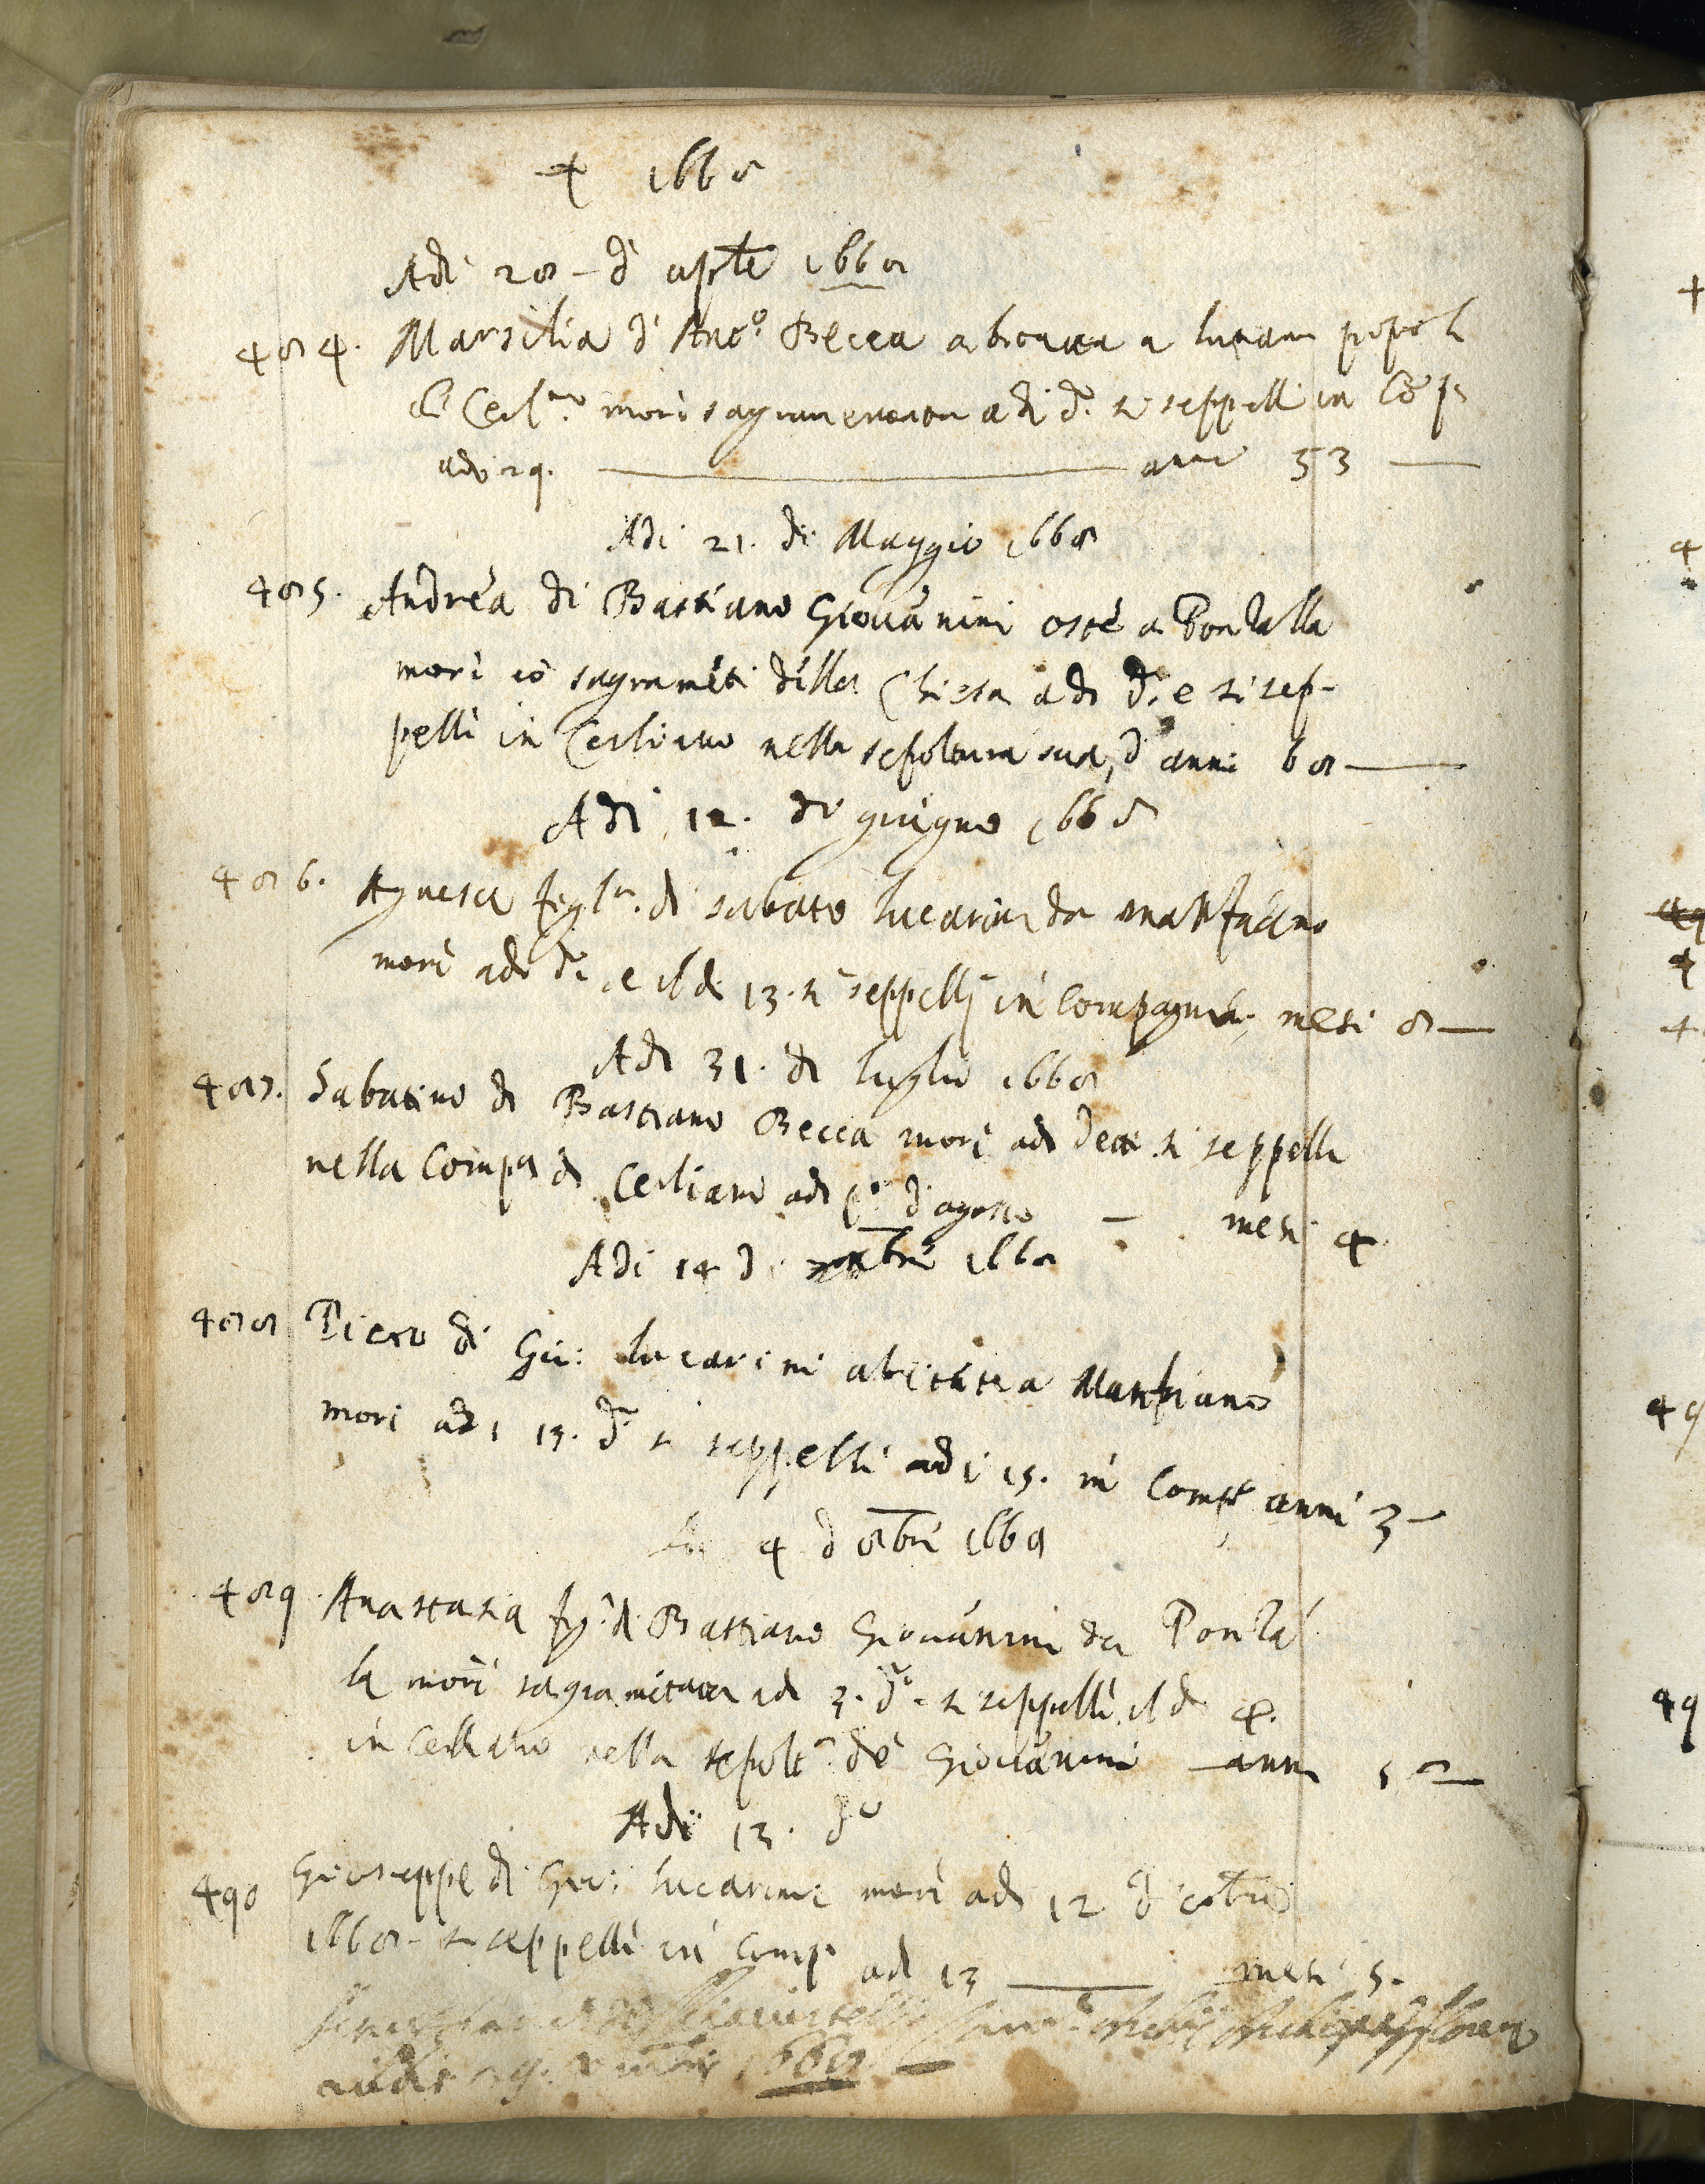 ✝ 1668
Adi 28 - d' aple 1668
484. Marsilia d' Anto: Becca a popol
di Cerl.no morì sagramentata adi do. si seppellì in Cōp.
adi 29. anni 53
Adi 21. di Maggio 1668
485. Andrea di Bastiano Giovānini oste a Pontalla
morì cō sagramēti della Chiesa adi do. e si sep-
pellì in Cerliano nella sepoltura sua, d' anni 68
Adi 12. di giugno 1668
486. Agnesa figla. di Sabato Lucarini da
morì adi do. e il di 13. si seppellì in Compagnia, mesi 8
Adi 31. di luglio 1668
487. Sabatino di Bastiano Becca morì adi detto si seppellì
nella Compa di Cerliano adi po. d' agosto - mesi 4
Adi 14 di 1668
488 Piero di Gio: Lucarini
morì adi 13. do si seppellì adi 15. in Compa anni 3
Adi 4 d 8bre 1668
489 Anastasia fa. di Bastiano Giovānini da Pontal
la morì sagramētata adi 3. do. si seppellì il di 4.
in Cerliano nella sepolta. de Giovānini anni
Adi 13. do
490 Gioseppe di Gio: Lucarini morì adi 12 d'
1668 - si seppellì in Comp. adi 13 mesi 5.